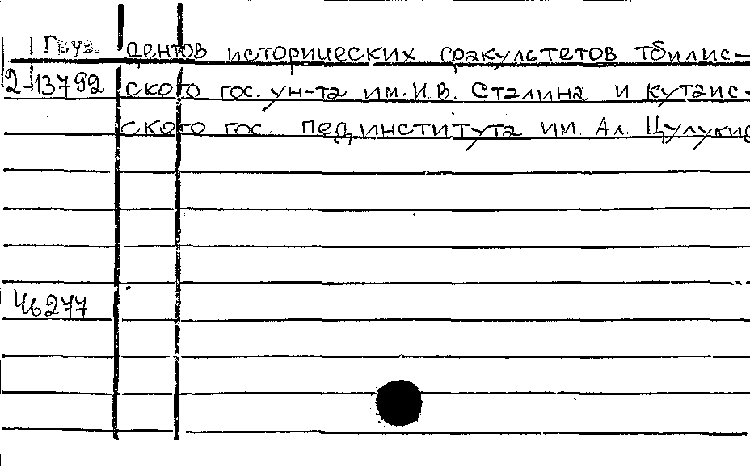 Груз. дентов исторических факультетов Тбилис-
2-13792 ского гос. ун-та им. И.В. Сталина и Кутаис-
ского гос. пединститута им. Ал. Цулукид
46277